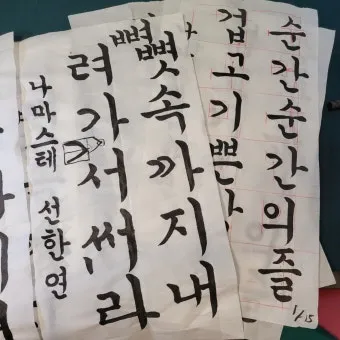 순간순간의즐
겁고기쁜
1/15
뼛속까지내
뼈
려가서써라
나마스테 선한언